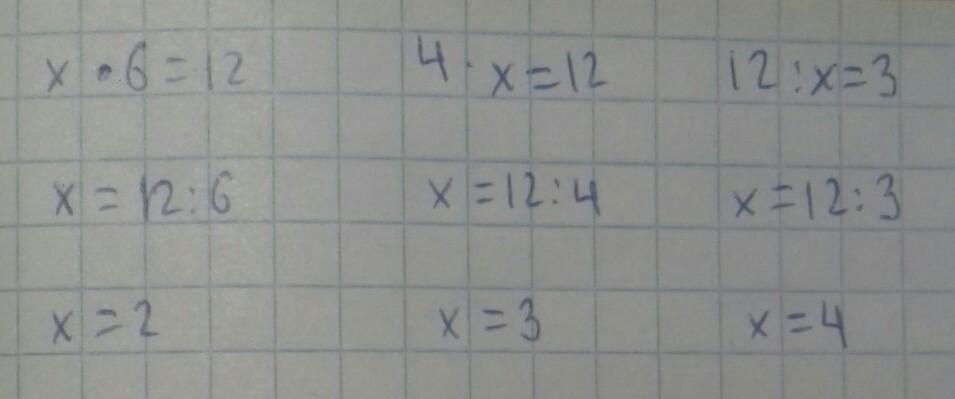 x · 6 = 12
x = 12 : 6
x = 2
4 · x = 12
x = 12 : 4
x = 3
12 : x = 3
x = 12 : 3
x = 4